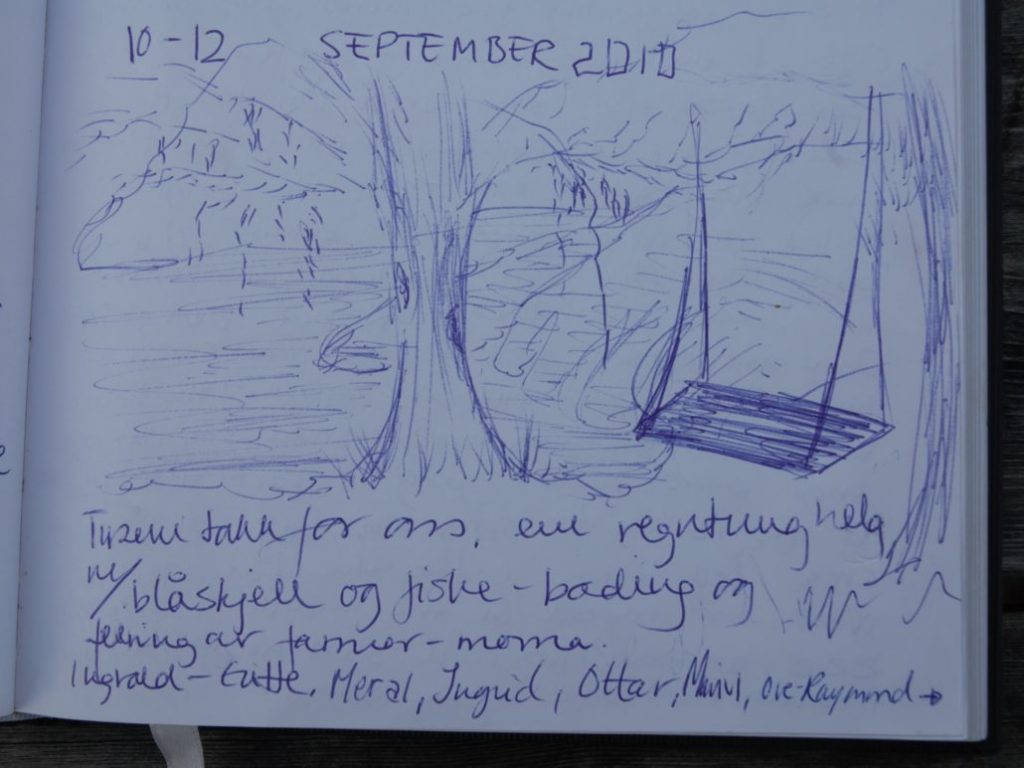 10-12 SEPTEMBER 2010
Tusen takk for oss, en regntung helg
m/blåskjell og fiske-bading og
feiring av farmor-morma.
Tutte, Meral, Ingrid, Ottar, Ove-Raymond →